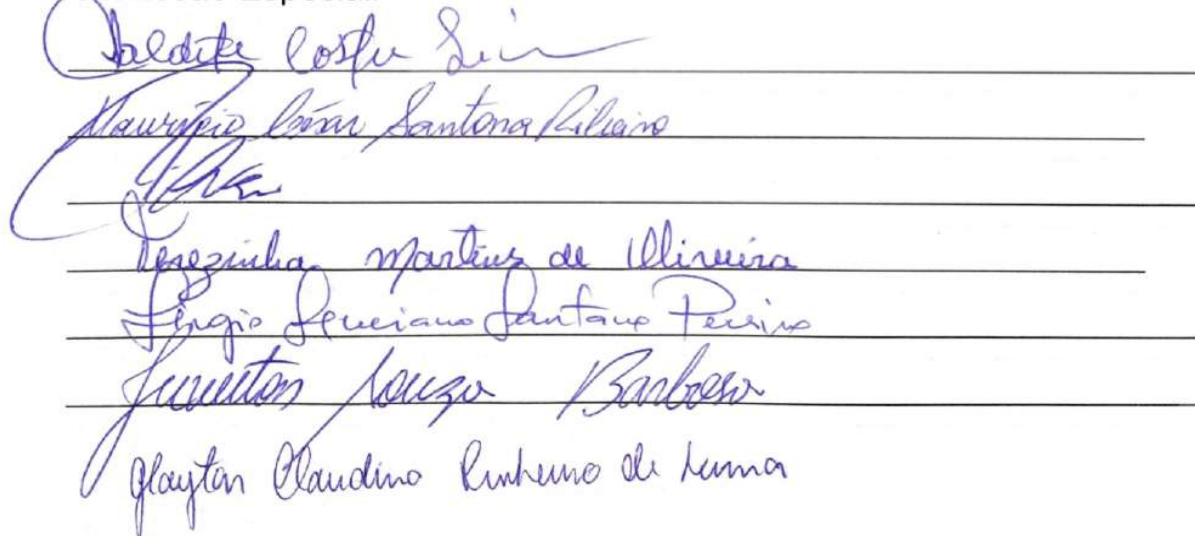 Valdete Costa
Maurício César Santana Ribeiro
Terezinha Martins de Oliveira
Sérgio Luciano Santana Pereira
Souza Barbosa
Glayton Claudino Pinheiro de Lima